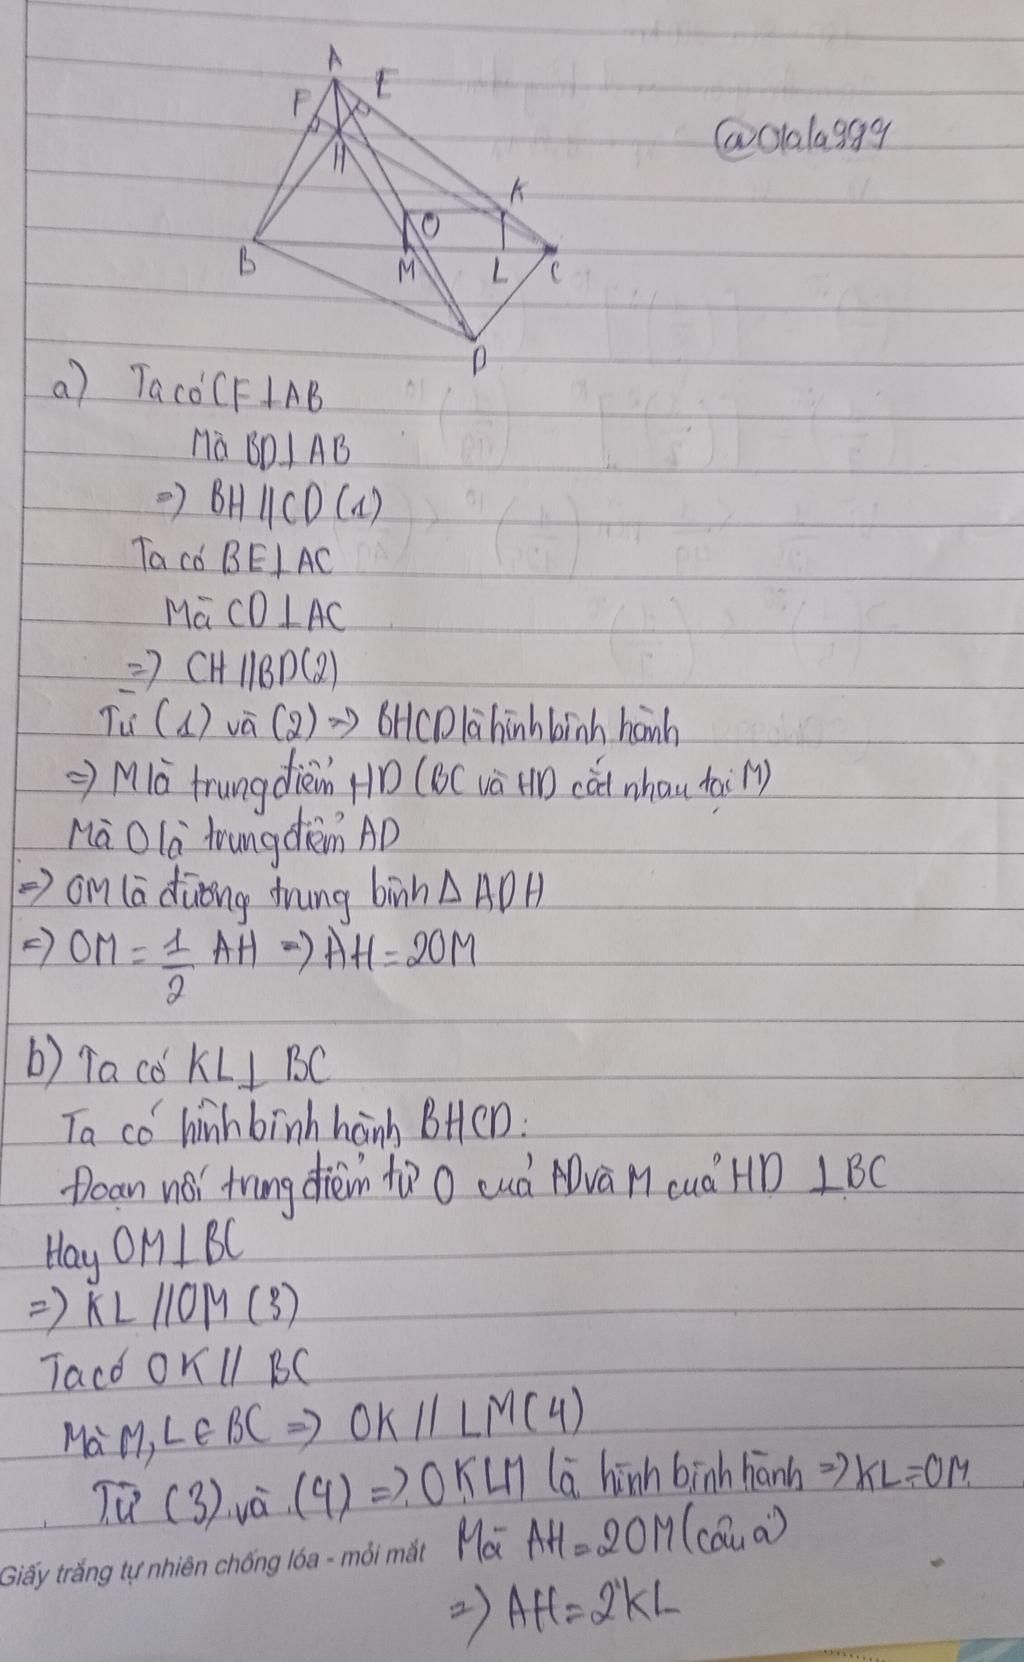 A
F E
@olala999
H
K
O
B M L C
D
a) Ta có CF⊥AB
Mà BD⊥AB
=> BH//CD (1)
Ta có BE⊥AC
Mà CD⊥AC
=> CH//BD(2)
Từ (1) và (2) => BHCD là hình bình hành
=> M là trung điểm HD (BC và HD cắt nhau tại M)
Mà O là trung điểm AD
=> OM là đường trung bình Δ ADH
=> OM = 1/2 AH => AH = 2OM
b) Ta có KL⊥ BC
Ta có hình bình hành BHCD:
Đoạn nối trung điểm từ O của AD và M của HD ⊥BC
Hay OM⊥BC
=> KL //OM (3)
Ta có OK// BC
Mà M, L∈BC => OK // LM(4)
Từ (3) và (4) => OKLM là hình bình hành => KL=OM
Mà AH=2OM(câu a)
Giấy trắng tự nhiên chống lóa - mỏi mắt
=> AH=2KL